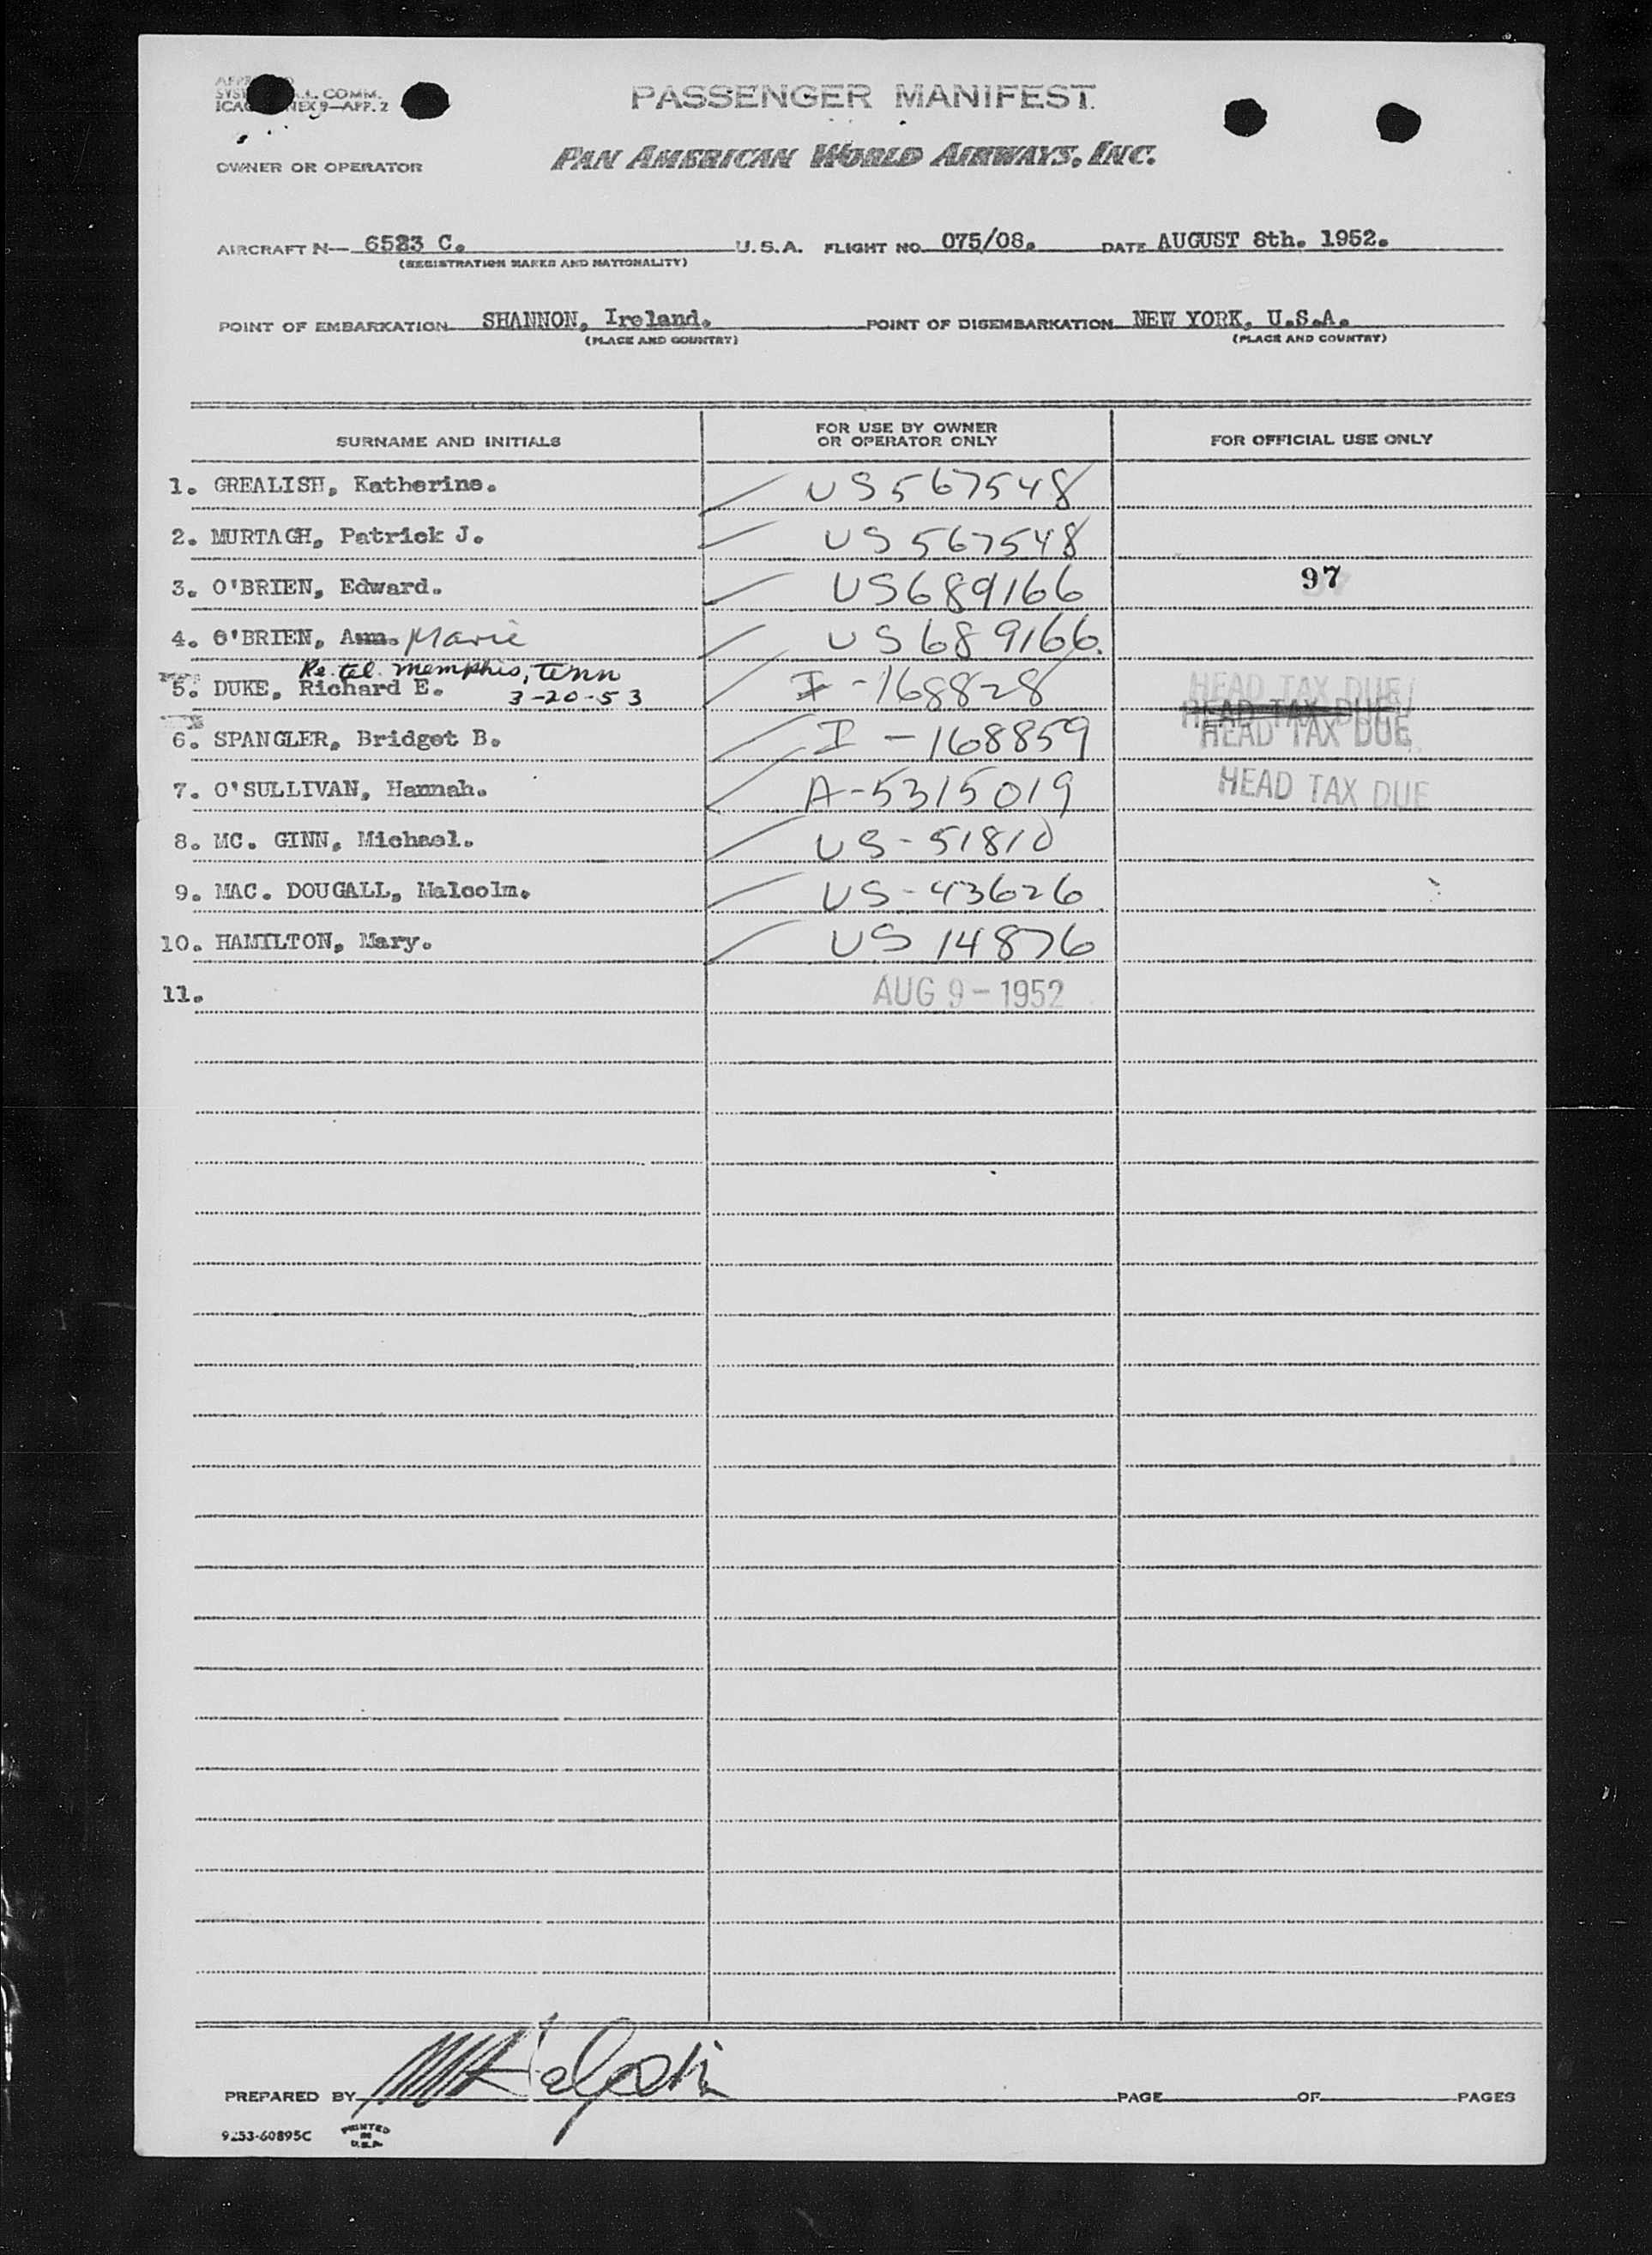 SYS A.L. COMM.
ICAO ANNEX 9—APP. 2
PASSENGER MANIFEST
OWNER OR OPERATOR PAN AMERICAN WORLD AIRWAYS, INC.
AIRCRAFT N— 6523 C. U.S.A. FLIGHT NO. 075/08. DATE AUGUST 8th. 1952.
(REGISTRATION MARKS AND NATIONALITY)
POINT OF EMBARKATION SHANNON, Ireland. POINT OF DISEMBARKATION NEW YORK, U.S.A.
(PLACE AND COUNTRY) (PLACE AND COUNTRY)
SURNAME AND INITIALS FOR USE BY OWNER OR OPERATOR ONLY FOR OFFICIAL USE ONLY
1. GREALISH, Katherine. US567548
2. MURTAGH, Patrick J. US567548
3. O'BRIEN, Edward. US689166 97
4. O'BRIEN, Ann. Marie US689166.
Re. tel. Memphis, Tenn
5. DUKE, Richard E. 3-20-53 I-168828 HEAD TAX DUE
HEAD TAX DUE
6. SPANGLER, Bridget B. I-168859 HEAD TAX DUE
7. O'SULLIVAN, Hannah. A-5315019 HEAD TAX DUE
8. MC. GINN, Michael. US-51810
9. MAC. DOUGALL, Malcolm. US-43626
10. HAMILTON, Mary. US 14876
11. AUG 9-1952
PREPARED BY PAGE OF PAGES
9253-60895C PRINTED IN U.S.A.